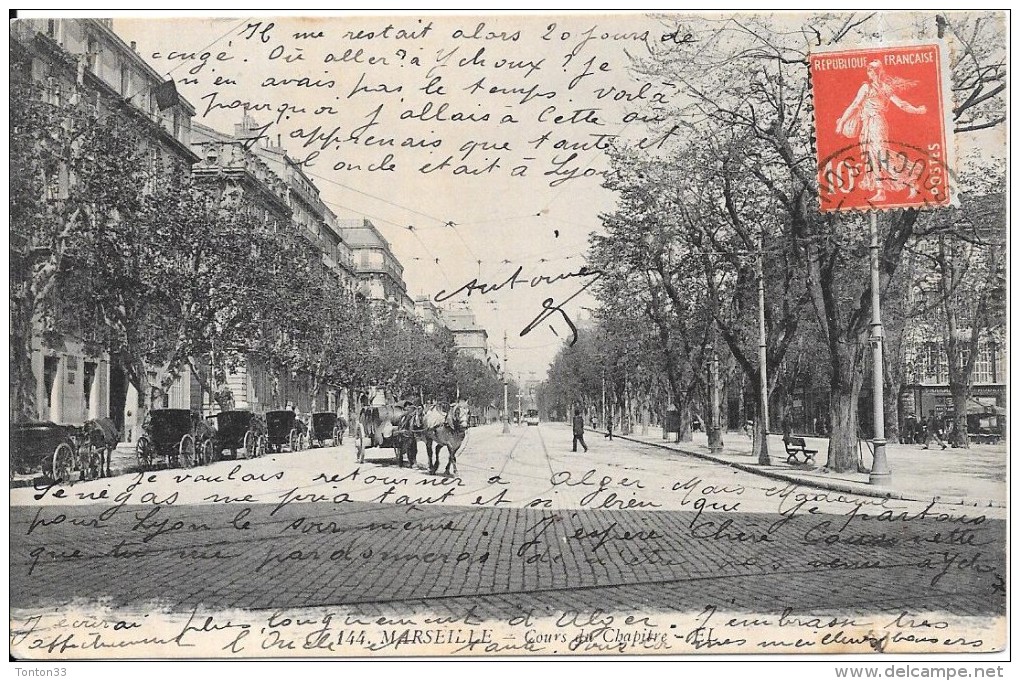 Il me restait alors 20 jours de
congé. Où aller? à Ychoux? je
n'en avais pas le temps. voilà
pourquoi j'allais à Cette où
j'apprenais que tante et
l'oncle était à Lyon
REPUBLIQUE FRANÇAISE
10
POSTES
Antome
Je voulais retourner à Alger. Mais Mme
Senegas me pria tant et si bien que je partais
pour Lyon le soir même J'espère Chère Cousinette
que tu me pardonneras de ne pas être venu à Ych
J'écrirai plus longuement d'Alger J'embrasse très
affectueusement l'Oncle et Tante. Pour toi mes meilleurs baisers.
144. MARSEILLE - Cours du Chapitre - EL
Tonton33
www.delcampe.net